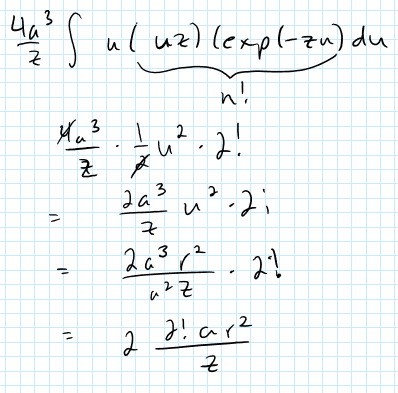 4a³/z ∫ u(uz)(exp(-zu)du
n!
4a³/z · 1/2 u² · 2!
= 2a³/z u² · 2!
= 2a³r²/a²z · 2!
= 2 2! ar²/z